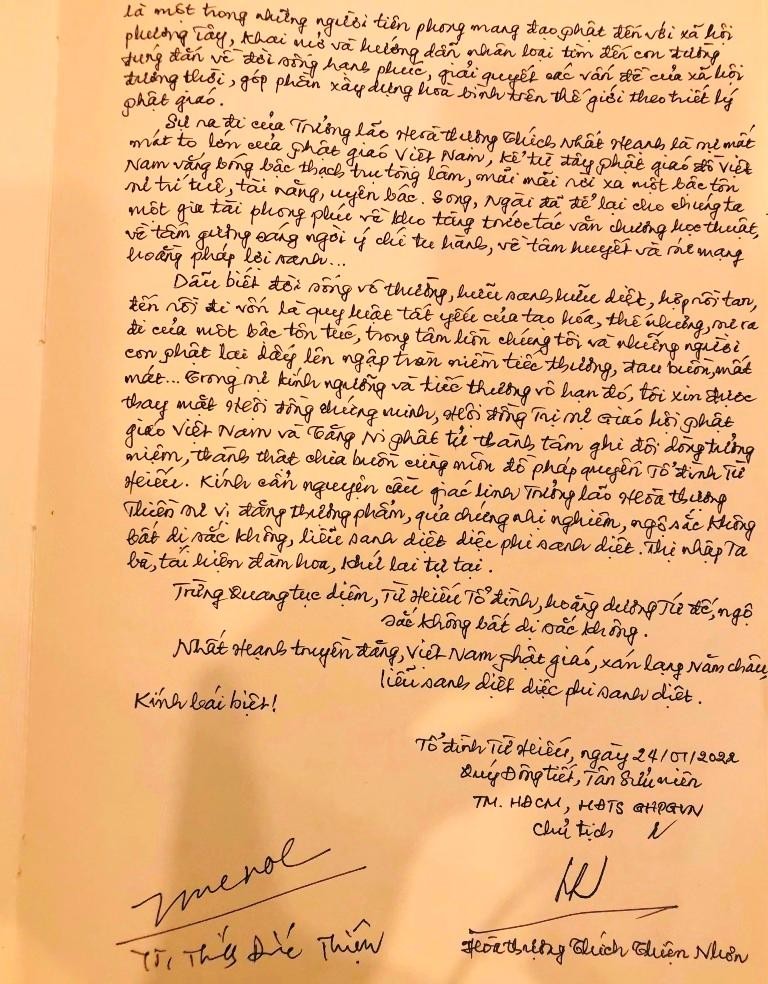 là một trong những người tiên phong mang đạo phật đến với xã hội
phương Tây, khai mở và hướng dẫn nhân loại tìm đến con đường
đúng đắn về đời sống hạnh phúc, giải quyết các vấn đề của xã hội
đương thời, góp phần xây dựng hoà bình trên thế giới theo triết lý
phật giáo.
Sự ra đi của Trưởng lão Hoà thượng Thích Nhất Hạnh là sự mất
mát to lớn của phật giáo Việt Nam, kể từ đây phật giáo đồ Việt
Nam vắng bóng bậc thạch trụ tòng lâm, mãi mãi rời xa một bậc tôn
sư trí tuệ, tài năng, uyên bác. Song, Ngài đã để lại cho chúng ta
một gia tài phong phú về kho tàng trước tác văn chương học thuật,
về tấm gương sáng ngời ý chí tu hành, về tâm huyết và sứ mạng
hoằng pháp lợi sanh...
Dẫu biết đời sống vô thường, hữu sanh hữu diệt, hợp rồi tan,
đến rồi đi vốn là quy luật tất yếu của tạo hóa, thế nhưng, sự ra
đi của một bậc tôn túc, trong tâm hồn chúng tôi và những người
con phật lại dấy lên ngập tràn niềm tiếc thương, đau buồn, mất
mát... Trong sự kính ngưỡng và tiếc thương vô hạn đó, tôi xin được
thay mặt Hội đồng chứng minh, Hội đồng Trị sự Giáo hội phật
giáo Việt Nam và Tăng Ni phật tử thành tâm ghi đôi dòng tưởng
niệm, thành thật chia buồn cùng môn đồ pháp quyến Tổ đình Từ
Hiếu. Kính cẩn nguyện cầu giác linh Trưởng lão Hoà thượng
Thiền sư vị đăng thượng phẩm, quả chứng nhi nghiêm, ngộ sắc không
bất dị sắc không, liễu sanh diệt diệc phi sanh diệt. Thị nhập Ta
bà, tái hiện đàm hoa, khứ lai tự tại.
Trừng Quang tục diệm, Từ Hiếu Tổ đình, hoằng dương Tứ đế, ngộ
sắc không bất dị sắc không.
Nhất Hạnh truyền đăng, Việt Nam phật giáo, xán lạng Năm châu,
liễu sanh diệt diệc phi sanh diệt.
Kính bái biệt!
Tổ đình Từ Hiếu, ngày 24/01/2022
Quý Đông tiết, Tân Sửu niên
TM. HĐCM, HĐTS GHPGVN
Chủ tịch
TT, Thích Đức Thiện
Hoà thượng Thích Thiện Nhơn